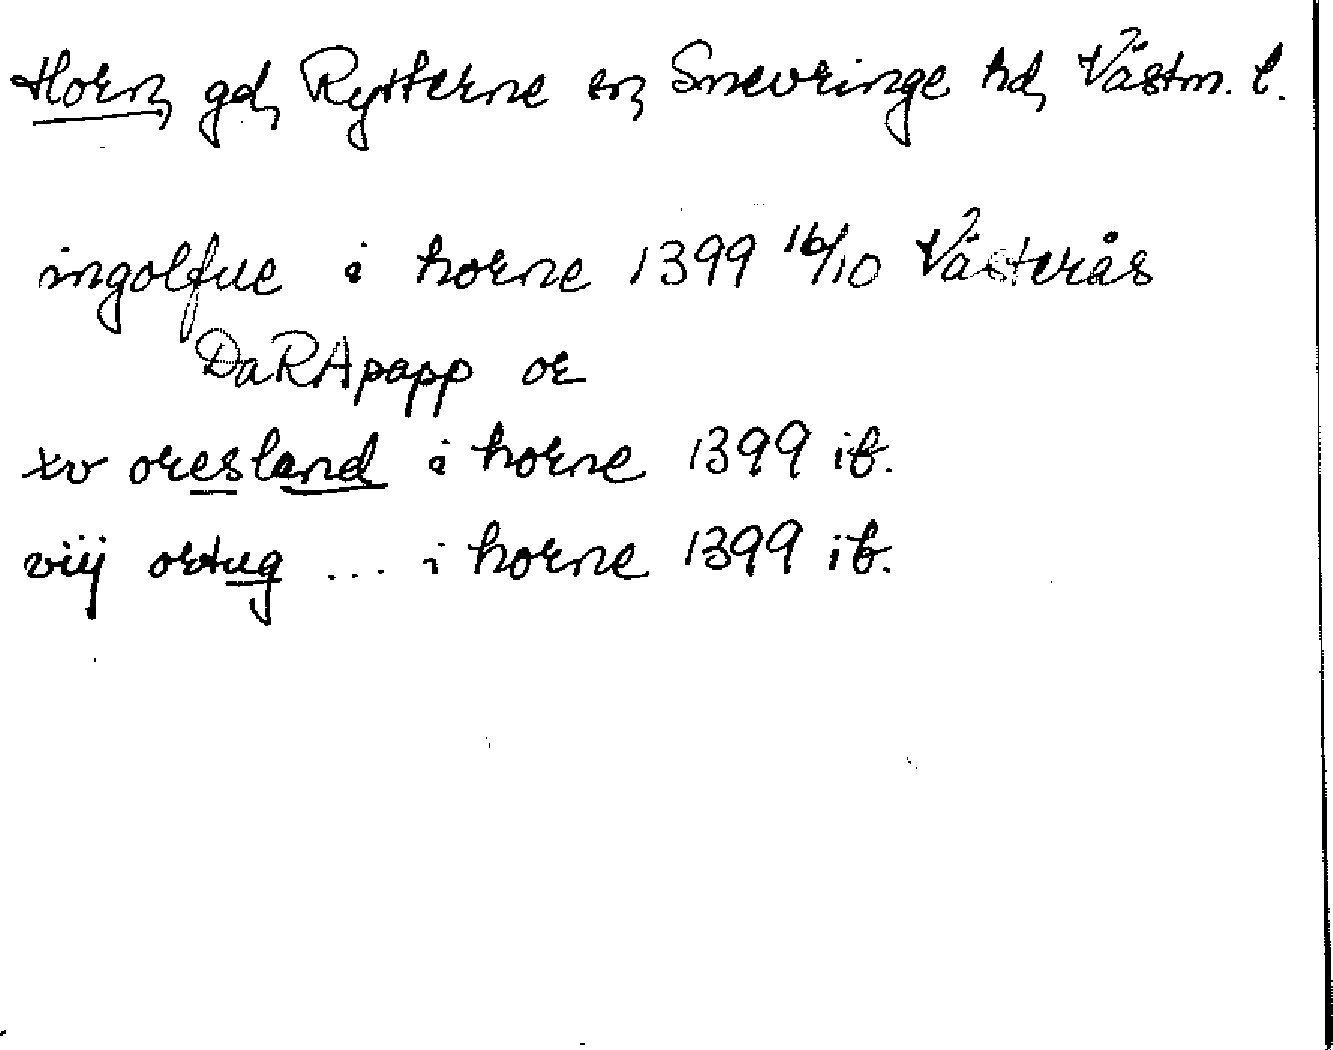 Horn, gd, Rytterne sn, Snevringe hd, Västm. l.
ingolfue i horne 1399 16/10 Västerås
DaRApapp or
xv oresland i horne 1399 ib.
viij ortug ... i horne 1399 ib.